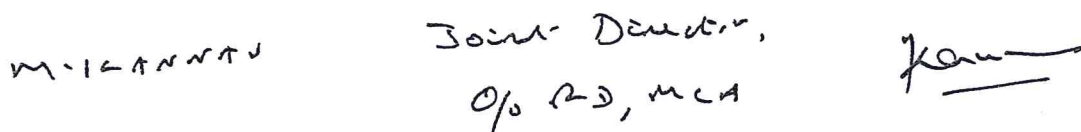 M. KANNAN
Joint Director,
O/o RD, MCA
Kan